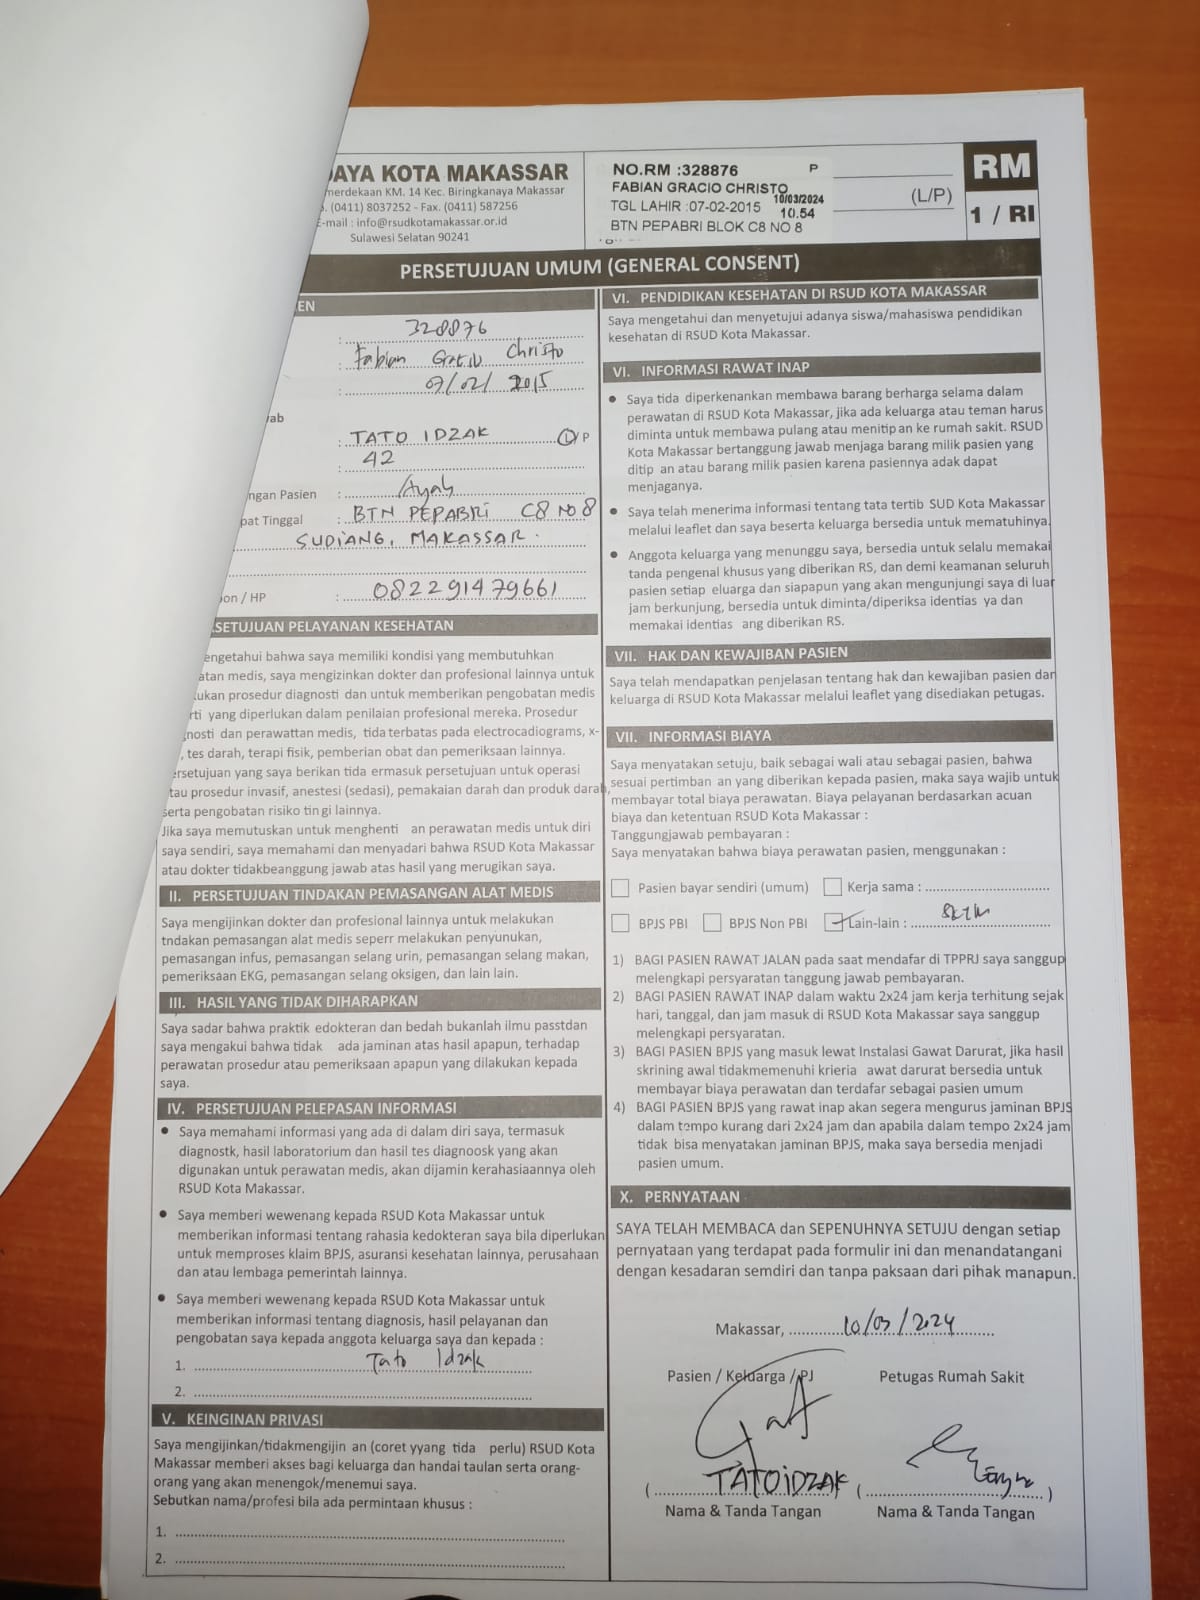 DAYA KOTA MAKASSAR
merdekaan KM. 14 Kec. Biringkanaya Makassar
. (0411) 8037252 - Fax. (0411) 587256
E-mail : info@rsudkotamakassar.or.id
Sulawesi Selatan 90241
NO.RM :328876 P
FABIAN GRACIO CHRISTO
TGL LAHIR :07-02-2015 10/03/2024
10.54
BTN PEPABRI BLOK C8 NO 8
(L/P)
RM
1 / RI
PERSETUJUAN UMUM (GENERAL CONSENT)
EN
: 328876
: Fabian Christo
: 07/02/2015
wab
: TATO IDZAK L/P
: 42
ngan Pasien : Ayah
pat Tinggal : BTN PEPABRI C8 NO 8
SUDIANG, MAKASSAR.
on / HP : 082291479661
SETUJUAN PELAYANAN KESEHATAN
engetahui bahwa saya memiliki kondisi yang membutuhkan
atan medis, saya mengizinkan dokter dan profesional lainnya untuk
ukan prosedur diagnosti dan untuk memberikan pengobatan medis
rti yang diperlukan dalam penilaian profesional mereka. Prosedur
gnosti dan perawattan medis, tida terbatas pada electrocadiograms, x-
, tes darah, terapi fisik, pemberian obat dan pemeriksaan lainnya.
ersetujuan yang saya berikan tida ermasuk persetujuan untuk operasi
tau prosedur invasif, anestesi (sedasi), pemakaian darah dan produk darah,
serta pengobatan risiko tin gi lainnya.
Jika saya memutuskan untuk menghenti an perawatan medis untuk diri
saya sendiri, saya memahami dan menyadari bahwa RSUD Kota Makassar
atau dokter tidakbeanggung jawab atas hasil yang merugikan saya.
II. PERSETUJUAN TINDAKAN PEMASANGAN ALAT MEDIS
Saya mengijinkan dokter dan profesional lainnya untuk melakukan
tndakan pemasangan alat medis seperr melakukan penyunukan,
pemasangan infus, pemasangan selang urin, pemasangan selang makan,
pemeriksaan EKG, pemasangan selang oksigen, dan lain lain.
III. HASIL YANG TIDAK DIHARAPKAN
Saya sadar bahwa praktik edokteran dan bedah bukanlah ilmu passtdan
saya mengakui bahwa tidak ada jaminan atas hasil apapun, terhadap
perawatan prosedur atau pemeriksaan apapun yang dilakukan kepada
saya.
IV. PERSETUJUAN PELEPASAN INFORMASI
• Saya memahami informasi yang ada di dalam diri saya, termasuk
diagnostk, hasil laboratorium dan hasil tes diagnoosk yang akan
digunakan untuk perawatan medis, akan dijamin kerahasiaannya oleh
RSUD Kota Makassar.
• Saya memberi wewenang kepada RSUD Kota Makassar untuk
memberikan informasi tentang rahasia kedokteran saya bila diperlukan
untuk memproses klaim BPJS, asuransi kesehatan lainnya, perusahaan
dan atau lembaga pemerintah lainnya.
• Saya memberi wewenang kepada RSUD Kota Makassar untuk
memberikan informasi tentang diagnosis, hasil pelayanan dan
pengobatan saya kepada anggota keluarga saya dan kepada :
1. Tato Idzak
2.
V. KEINGINAN PRIVASI
Saya mengijinkan/tidakmengijin an (coret yyang tida perlu) RSUD Kota
Makassar memberi akses bagi keluarga dan handai taulan serta orang-
orang yang akan menengok/menemui saya.
Sebutkan nama/profesi bila ada permintaan khusus :
1.
2.
VI. PENDIDIKAN KESEHATAN DI RSUD KOTA MAKASSAR
Saya mengetahui dan menyetujui adanya siswa/mahasiswa pendidikan
kesehatan di RSUD Kota Makassar.
VI. INFORMASI RAWAT INAP
• Saya tida diperkenankan membawa barang berharga selama dalam
perawatan di RSUD Kota Makassar, jika ada keluarga atau teman harus
diminta untuk membawa pulang atau menitip an ke rumah sakit. RSUD
Kota Makassar bertanggung jawab menjaga barang milik pasien yang
ditip an atau barang milik pasien karena pasiennya adak dapat
menjaganya.
• Saya telah menerima informasi tentang tata tertib SUD Kota Makassar
melalui leaflet dan saya beserta keluarga bersedia untuk mematuhinya.
• Anggota keluarga yang menunggu saya, bersedia untuk selalu memakai
tanda pengenal khusus yang diberikan RS, dan demi keamanan seluruh
pasien setiap eluarga dan siapapun yang akan mengunjungi saya di luar
jam berkunjung, bersedia untuk diminta/diperiksa identias ya dan
memakai identias ang diberikan RS.
VII. HAK DAN KEWAJIBAN PASIEN
Saya telah mendapatkan penjelasan tentang hak dan kewajiban pasien dan
keluarga di RSUD Kota Makassar melalui leaflet yang disediakan petugas.
VII. INFORMASI BIAYA
Saya menyatakan setuju, baik sebagai wali atau sebagai pasien, bahwa
sesuai pertimban an yang diberikan kepada pasien, maka saya wajib untuk
membayar total biaya perawatan. Biaya pelayanan berdasarkan acuan
biaya dan ketentuan RSUD Kota Makassar :
Tanggungjawab pembayaran :
Saya menyatakan bahwa biaya perawatan pasien, menggunakan :
Pasien bayar sendiri (umum) Kerja sama :
BPJS PBI BPJS Non PBI Lain-lain :
1) BAGI PASIEN RAWAT JALAN pada saat mendafar di TPPRJ saya sanggup
melengkapi persyaratan tanggung jawab pembayaran.
2) BAGI PASIEN RAWAT INAP dalam waktu 2x24 jam kerja terhitung sejak
hari, tanggal, dan jam masuk di RSUD Kota Makassar saya sanggup
melengkapi persyaratan.
3) BAGI PASIEN BPJS yang masuk lewat Instalasi Gawat Darurat, jika hasil
skrining awal tidakmemenuhi krieria awat darurat bersedia untuk
membayar biaya perawatan dan terdafar sebagai pasien umum
4) BAGI PASIEN BPJS yang rawat inap akan segera mengurus jaminan BPJS
dalam tempo kurang dari 2x24 jam dan apabila dalam tempo 2x24 jam
tidak bisa menyatakan jaminan BPJS, maka saya bersedia menjadi
pasien umum.
X. PERNYATAAN
SAYA TELAH MEMBACA dan SEPENUHNYA SETUJU dengan setiap
pernyataan yang terdapat pada formulir ini dan menandatangani
dengan kesadaran semdiri dan tanpa paksaan dari pihak manapun.
Makassar, 10/03/2024
Pasien / Keluarga / PJ Petugas Rumah Sakit
( TATO IDZAK ( )
Nama & Tanda Tangan Nama & Tanda Tangan